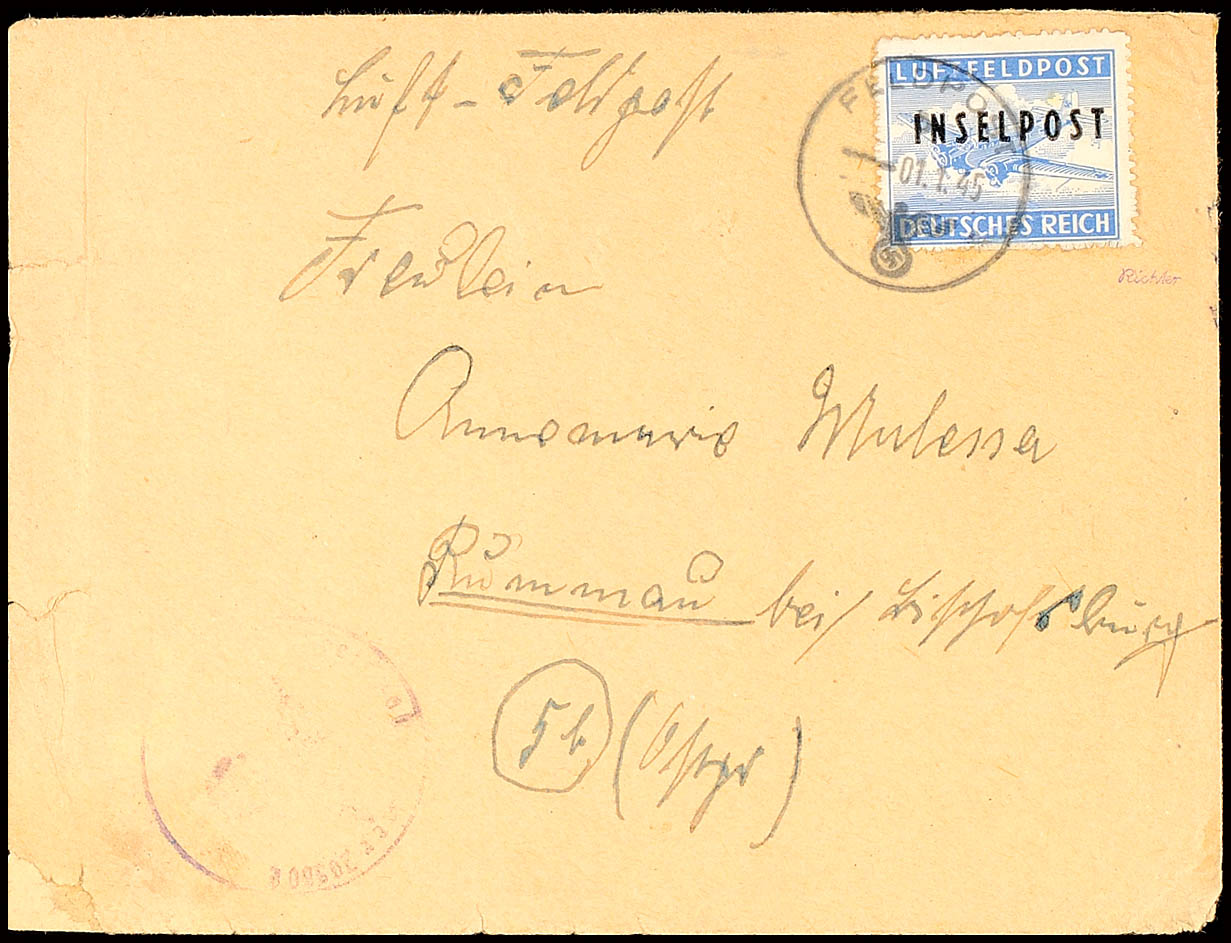 Luft-Feldpost
LUFTFELDPOST
INSELPOST
DEUTSCHES REICH
FELDPOST
01.1.45
Richter
Freulein
Annemarie Mulessa
Rummau bei Bischofsburg
5b (Ostpr)